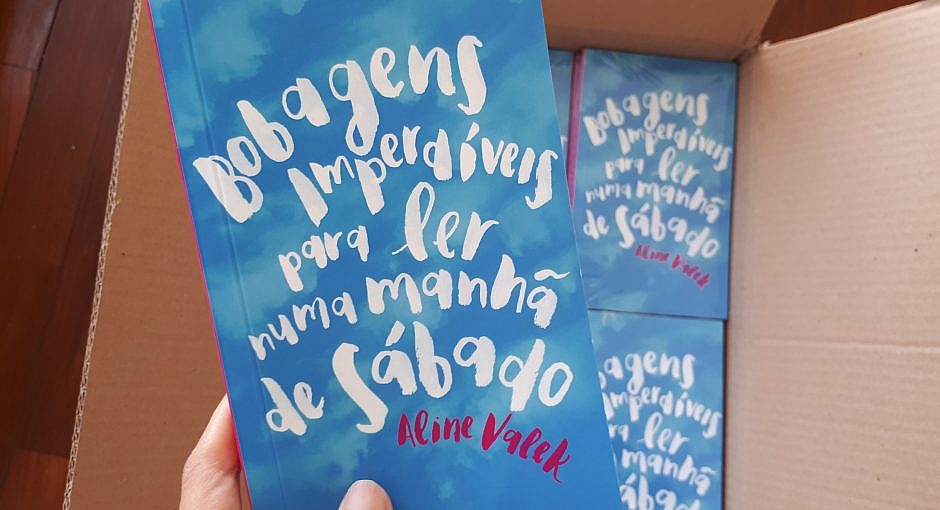 Bobagens
Imperdíveis
para ler
numa manhã
de Sábado
Aline Valek
Bobagens
Imperdíveis
para ler
numa manhã
de Sábado
Aline Valek
agens
mperdíveis
ler
manhã
ábado